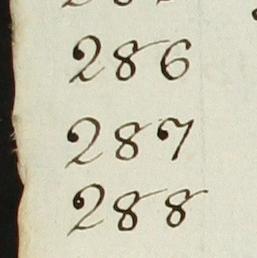 286
287
288